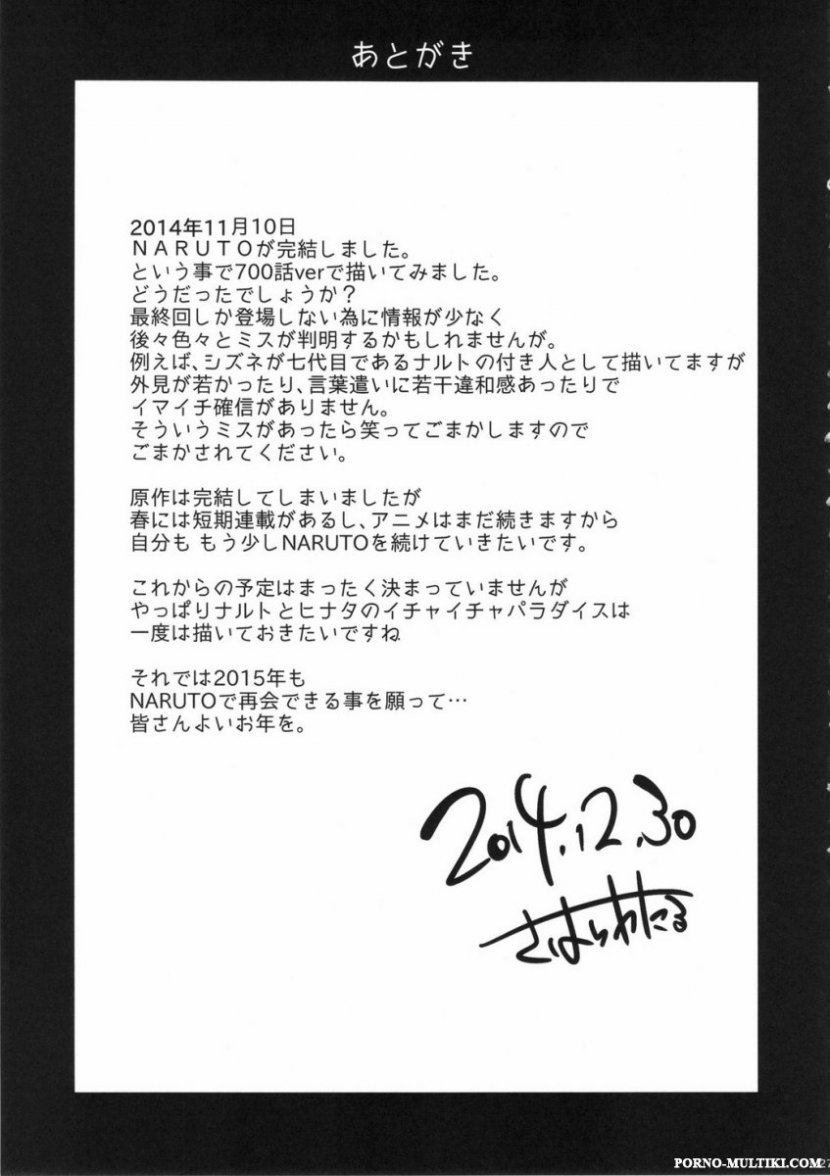 あとがき
2014年11月10日
NARUTOが完結しました。
という事で700話verで描いてみました。
どうだったでしょうか？
最終回しか登場しない為に情報が少なく
後々色々とミスが判明するかもしれませんが。
例えば、シズネが七代目であるナルトの付き人として描いてますが
外見が若かったり、言葉遣いに若干違和感あったりで
イマイチ確信がありません。
そういうミスがあったら笑ってごまかしますので
ごまかされてください。
原作は完結してしまいましたが
春には短期連載があるし、アニメはまだ続きますから
自分も もう少しNARUTOを続けていきたいです。
これからの予定はまったく決まっていませんが
やっぱりナルトとヒナタのイチャイチャパラダイスは
一度は描いておきたいですね
それでは2015年も
NARUTOで再会できる事を願って…
皆さんよいお年を。
2014.12.30
さはらわたる
PORNO-MULTIKI.COM